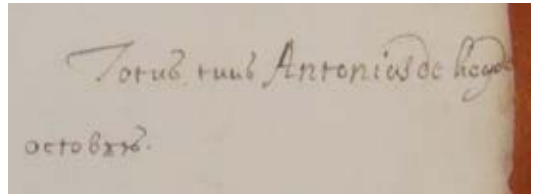 Totus tuus Antonius de heyde
octobris.